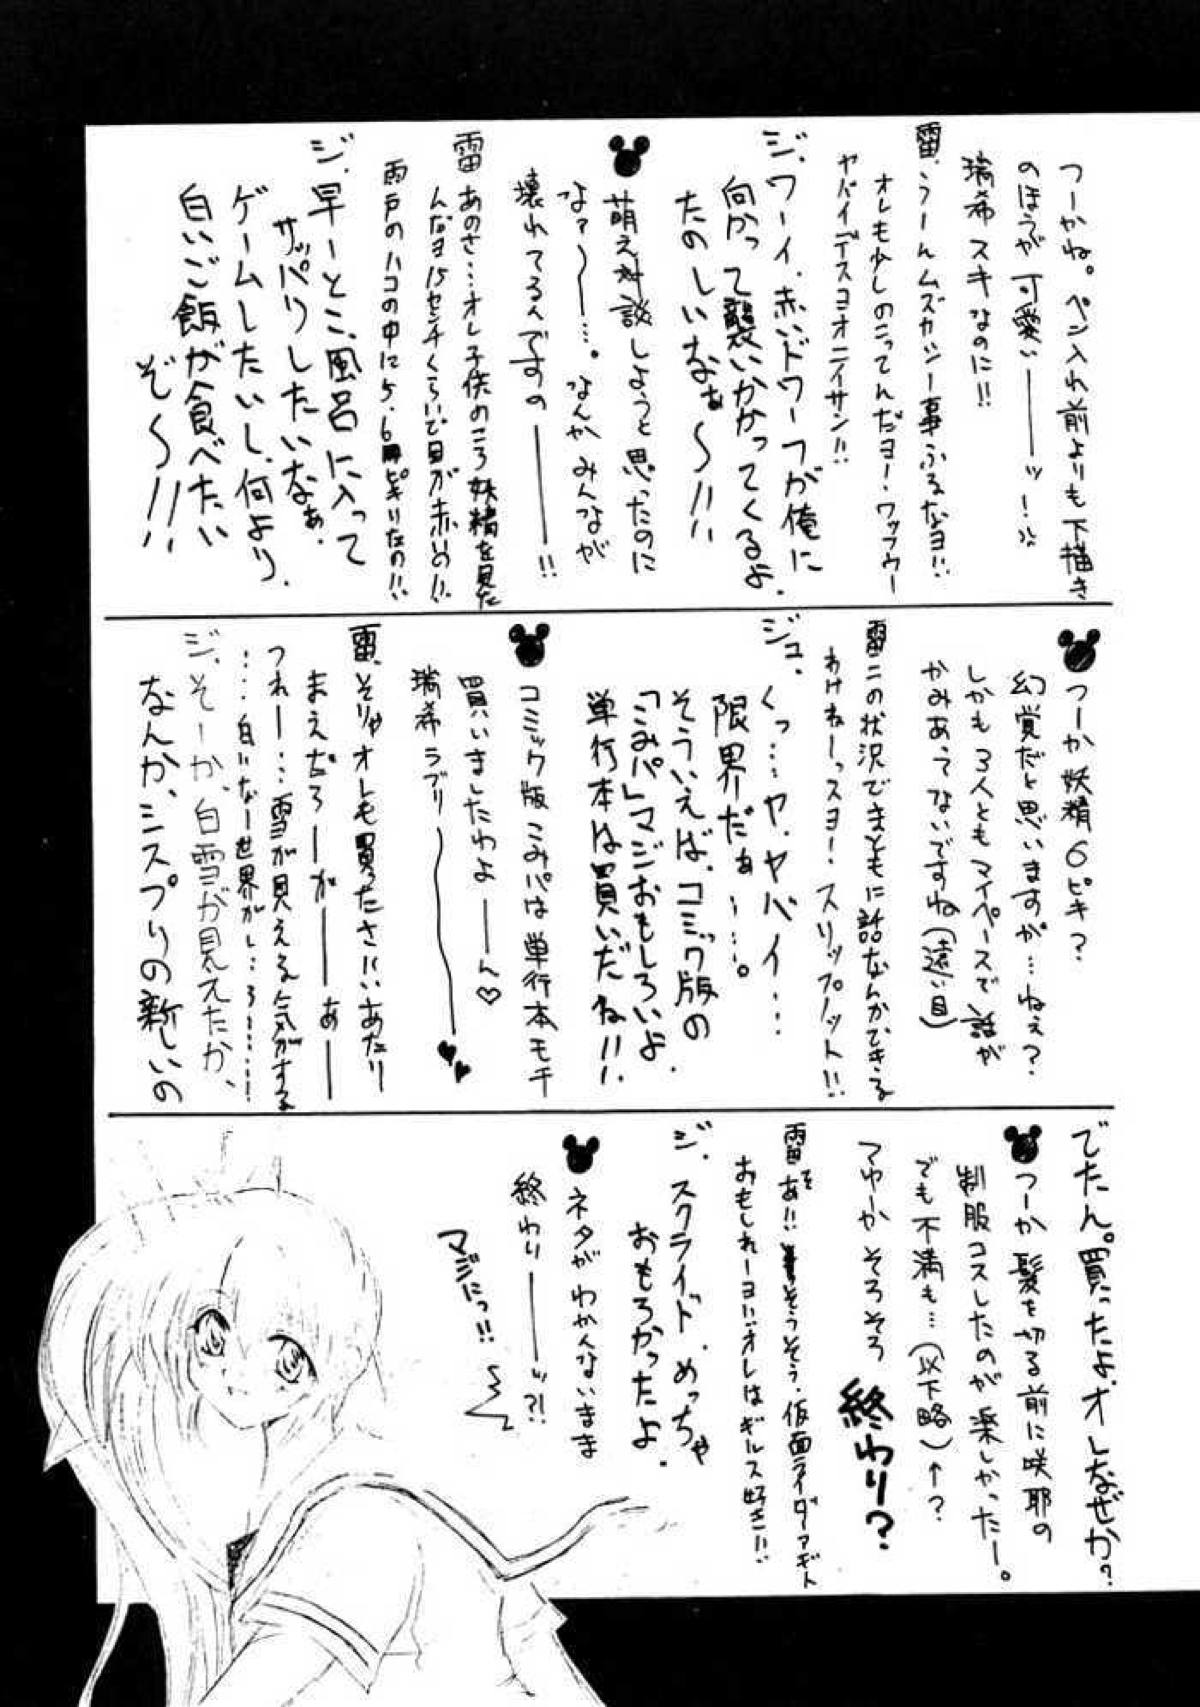 つーかね。ペン入れ前よりも下描き
のほうが可愛いーーーッ!
瑞希スキなのに!!
雷、うーんムズカシー事ふるなヨ!!
オレも少しのこってんだヨー・ワッフウー
ヤバイデスヨオニイサン!!
ジ、ワーイ、赤いドワーフが俺に
向かって襲いかかってくるよ、
たのしいなぁ〜!!
萌え対談しようと思ったのに
なァ〜…。なんかみんなが
壊れてるんですのーーー!!
雷 あのさ…オレ子供のころ妖精を見た
んだヨ15センチくらいで目が赤いの!!
雨戸のハコの中に5、6ピキいたの!!
ジ、早ーとこ、風呂に入って
サッパリしたいなぁ、
ゲームしたいし、何より、
白いご飯が食べたい
ぞ〜!!
つーか妖精6ピキ?
幻覚だと思いますが…ねぇ?
しかも3人ともマイペースで話が
かみあってないですね(遠い目)
雷 この状況でまともに話なんかできる
わけねーっスヨー・スリップノット!!
ジュ、
くっ…ヤ、ヤバイ…
限界だぁ……。
そういえば、コミック版の
「こみパ」マジおもしろいよ、
単行本は買いだね!!
コミック版こみパは単行本モチ
買いましたわよーーん♡
瑞希ラブリ〜
雷、そりゃオレも買ったさ!!あたり
まえだろーがーーあーー
つれー…雪が見える気がする
…白いなー世界がしろ……!
ジ、そーか、白雪が見えたか、
なんか、シスプリの新しいの
でたん。買ったよ、オレなぜか?
つーか髪を切る前に咲耶の
制服コスしたのが楽しかったー。
でも不満も…(以下略)↑?
てゆーかそろそろ
終わり?
雷 あ!!そうそう、仮面ライダーアギト
おもしれーヨ!!オレはギルス好き!!
ジ、スクライド、めっちゃ
おもろかったよ、
ネタがわかんないまま
終わりーーッ?!
マジにっ!!